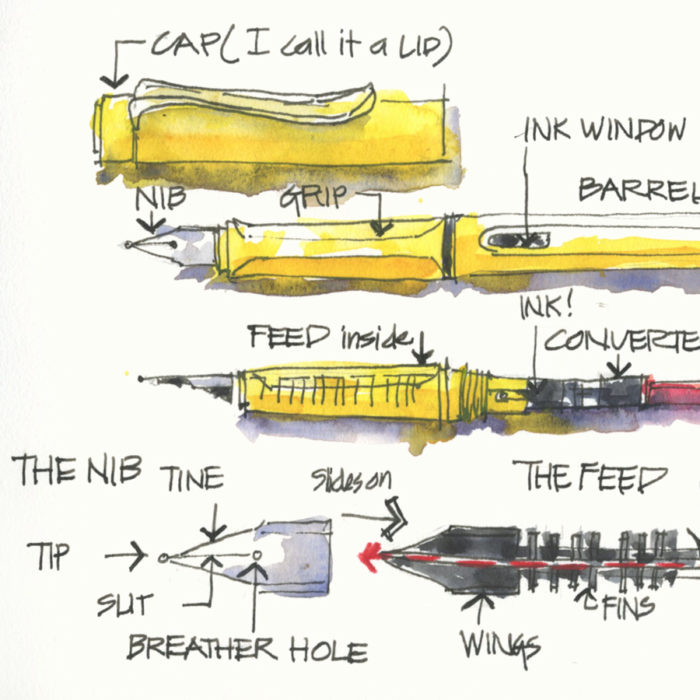 CAP (I call it a LID)
INK WINDOW
BARREL
NIB
GRIP
INK!
FEED inside
CONVERTE
THE NIB
TINE
Slides on
THE FEED
TIP
SLIT
FINS
BREATHER HOLE
WINGS